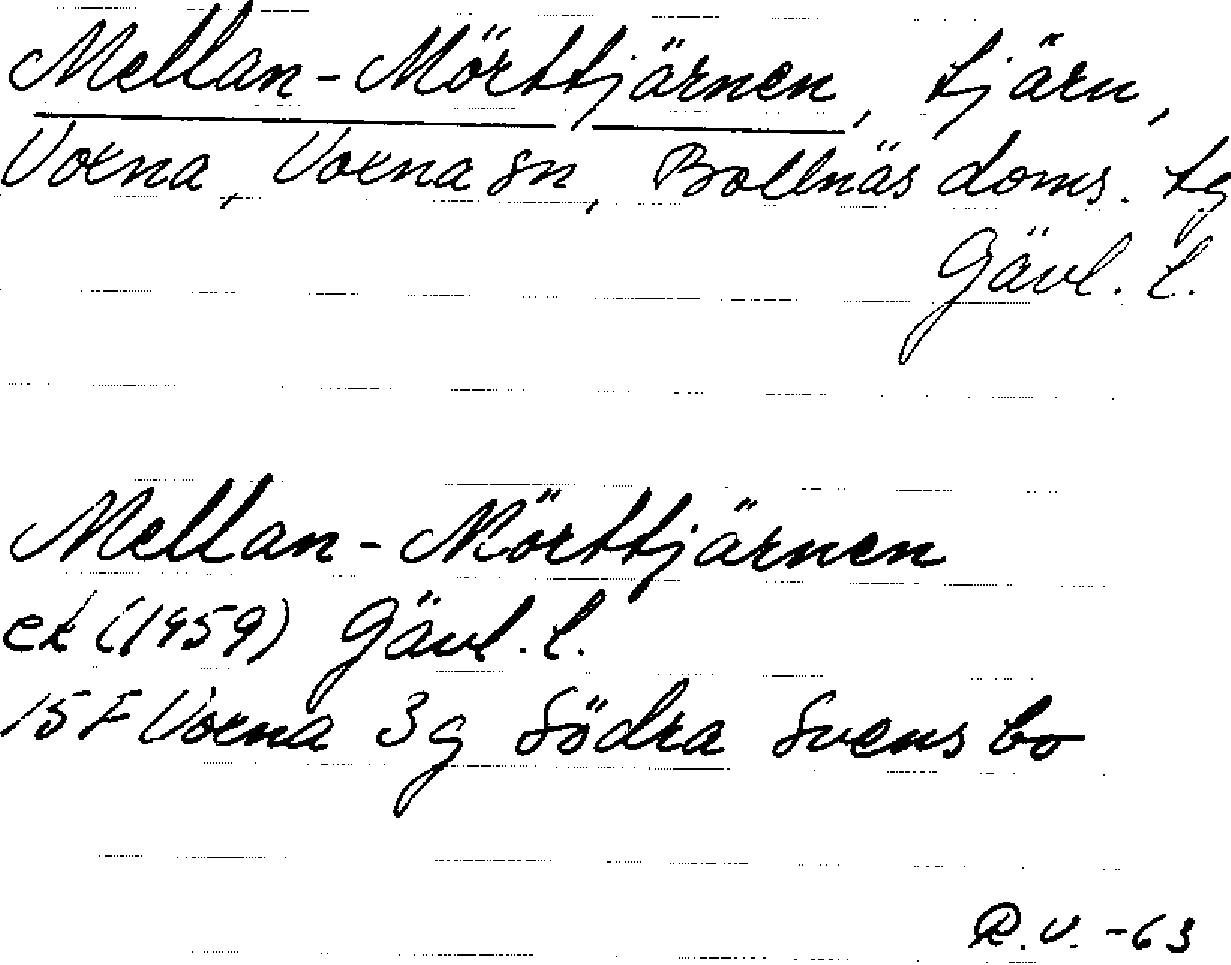 Mellan-Mörttjärnen, tjärn,
Voxna, Voxna sn, Bollnäs doms. tg
Gävl. l.
Mellan-Mörttjärnen
ek (1959) Gävl. l.
15F Voxna 3g Södra Svensbo
R.V. -63